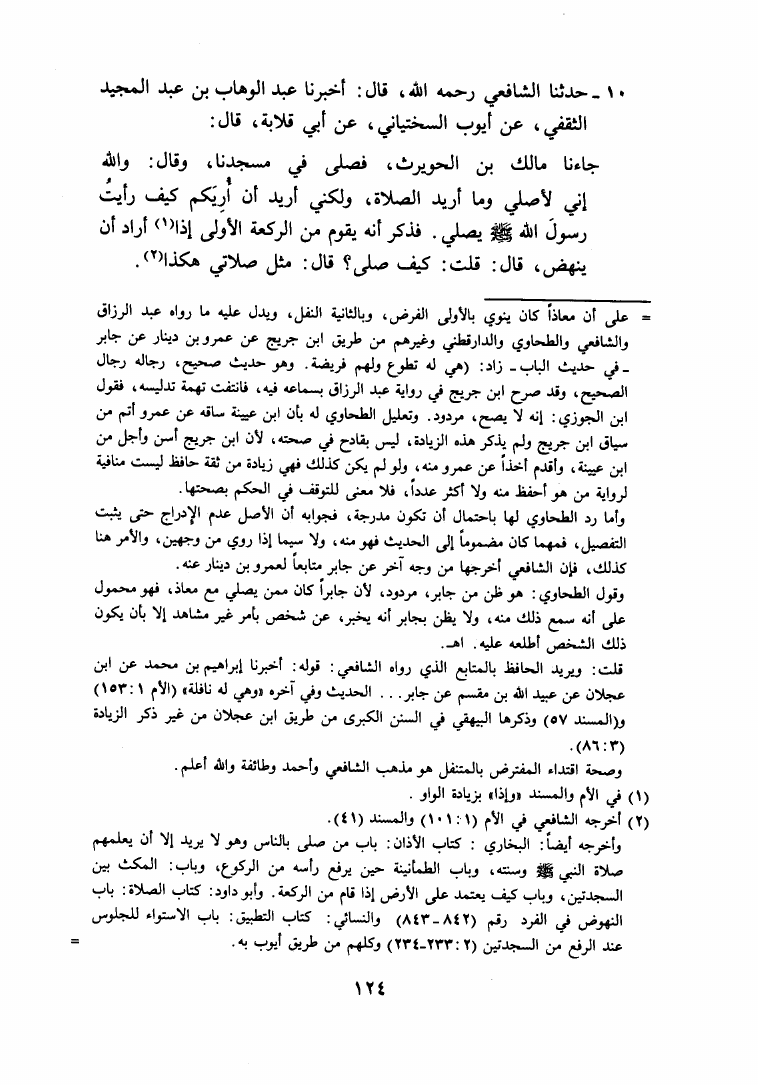 ١٠ ـ حدثنا الشافعي رحمه الله، قال: أخبرنا عبد الوهاب بن عبد المجيد
الثقفي، عن أيوب السختياني، عن أبي قلابة، قال:
جاءنا مالك بن الحويرث، فصلى في مسجدنا، وقال: والله
إني لأصلي وما أريد الصلاة، ولكني أريد أن أُرِيَكم كيف رأيتُ
رسولَ الله ﷺ يصلي. فذكر أنه يقوم من الركعة الأولى إذا(١) أراد أن
ينهض، قال: قلت: كيف صلى؟ قال: مثل صلاتي هكذا(٢).
= على أن معاذاً كان ينوي بالأولى الفرض، وبالثانية النفل، ويدل عليه ما رواه عبد الرزاق
والشافعي والطحاوي والدارقطني وغيرهم من طريق ابن جريج عن عمرو بن دينار عن جابر
ـ في حديث الباب ـ زاد: (هي له تطوع ولهم فريضة. وهو حديث صحيح، رجاله رجال
الصحيح، وقد صرح ابن جريج في رواية عبد الرزاق بسماعه فيه، فانتفت تهمة تدليسه، فقول
ابن الجوزي: إنه لا يصح، مردود. وتعليل الطحاوي له بأن ابن عيينة ساقه عن عمرو أتم من
سياق ابن جريج ولم يذكر هذه الزيادة، ليس بقادح في صحته، لأن ابن جريج أسن وأجل من
ابن عيينة، وأقدم أخذاً عن عمرو منه، ولو لم يكن كذلك فهي زيادة من ثقة حافظ ليست منافية
لرواية من هو أحفظ منه ولا أكثر عدداً، فلا معنى للتوقف في الحكم بصحتها.
وأما رد الطحاوي لها باحتمال أن تكون مدرجة، فجوابه أن الأصل عدم الإدراج حتى يثبت
التفصيل، فمهما كان مضموماً إلى الحديث فهو منه، ولا سيما إذا روي من وجهين، والأمر هنا
كذلك، فإن الشافعي أخرجها من وجه آخر عن جابر متابعاً لعمرو بن دينار عنه.
وقول الطحاوي: هو ظن من جابر، مردود، لأن جابراً كان ممن يصلي مع معاذ، فهو محمول
على أنه سمع ذلك منه، ولا يظن بجابر أنه يخبر، عن شخص بأمر غير مشاهد إلا بأن يكون
ذلك الشخص أطلعه عليه. اهـ.
قلت: ويريد الحافظ بالمتابع الذي رواه الشافعي: قوله: أخبرنا إبراهيم بن محمد عن ابن
عجلان عن عبيد الله بن مقسم عن جابر... الحديث وفي آخره «وهي له نافلة» (الأم ١: ١٥٣)
و(المسند ٥٧) وذكرها البيهقي في السنن الكبرى من طريق ابن عجلان من غير ذكر الزيادة
(٣: ٨٦).
وصحة اقتداء المفترض بالمتنفل هو مذهب الشافعي وأحمد وطائفة والله أعلم.
(١) في الأم والمسند «وإذا» بزيادة الواو .
(٢) أخرجه الشافعي في الأم (١: ١٠١) والمسند (٤١).
وأخرجه أيضاً: البخاري : كتاب الأذان: باب من صلى بالناس وهو لا يريد إلا أن يعلمهم
صلاة النبي ﷺ وسنته، وباب الطمأنينة حين يرفع رأسه من الركوع، وباب: المكث بين
السجدتين، وباب كيف يعتمد على الأرض إذا قام من الركعة. وأبو داود: كتاب الصلاة: باب
النهوض في الفرد رقم (٨٤٢ـ٨٤٣) والنسائي: كتاب التطبيق: باب الاستواء للجلوس
عند الرفع من السجدتين (٢: ٢٣٣ـ٢٣٤) وكلهم من طريق أيوب به. =
١٢٤